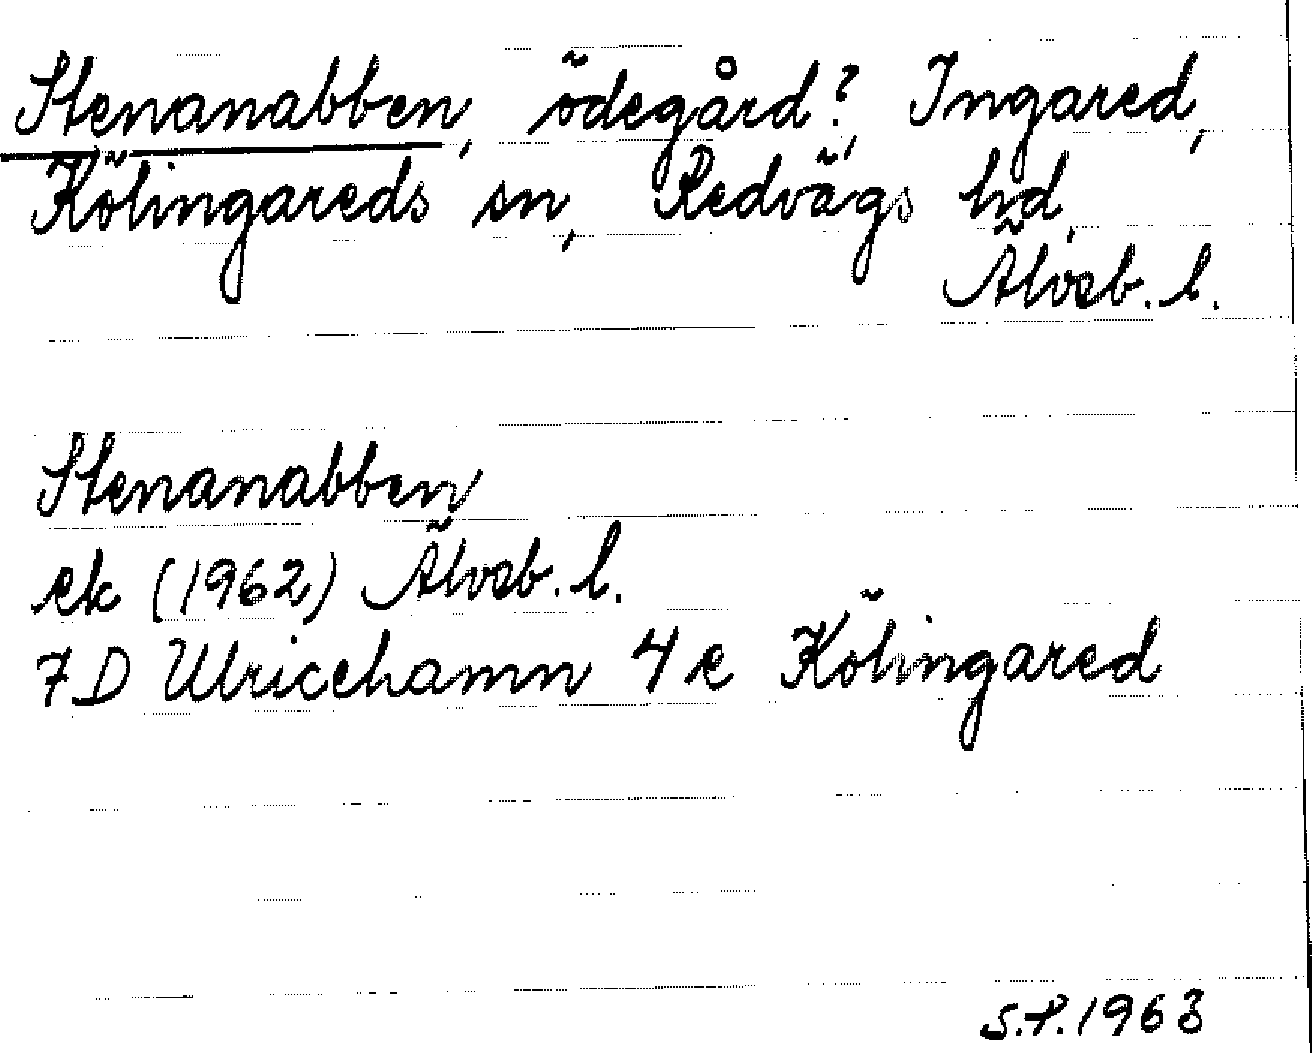 Stenanabben, ödegård?, Ingared,
Kölingareds sn, Redvägs hd,
Älvsb. l.
Stenanabben
ek (1962) Älvsb. l.
7D Ulricehamn 4e Kölingared
S.P. 1963